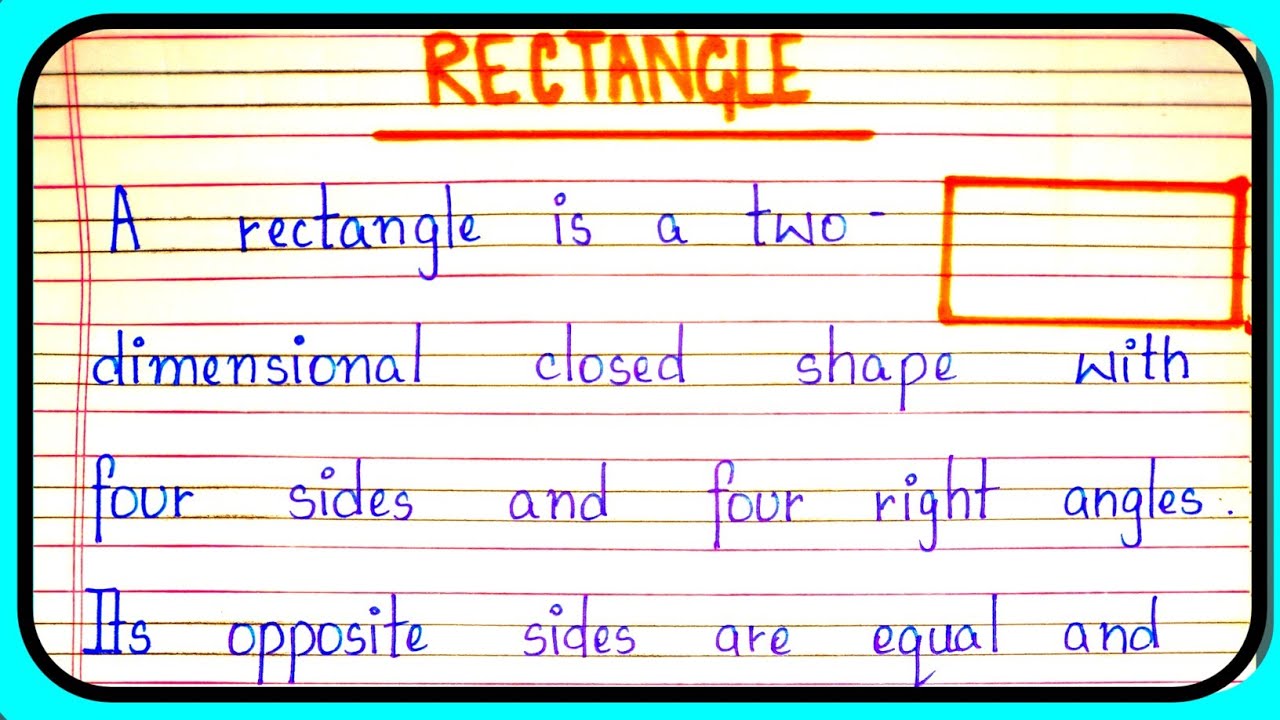 RECTANGLE
A rectangle is a two-
dimensional closed shape with
four sides and four right angles.
Its opposite sides are equal and